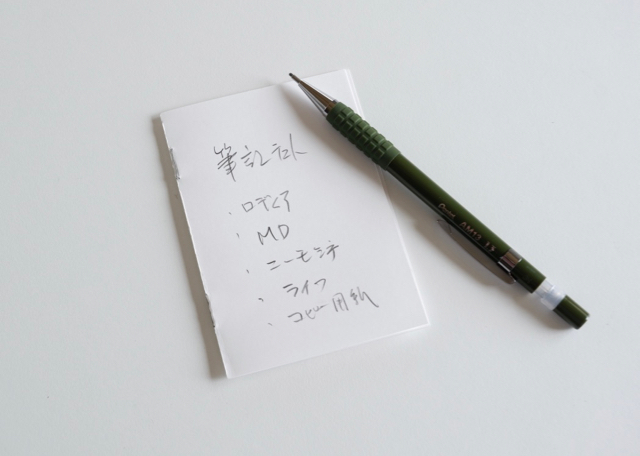 筆記テスト
・ロディア
・MD
・ニーモシネ
・ライフ
・コピー用紙
Pentel AM13 1.3